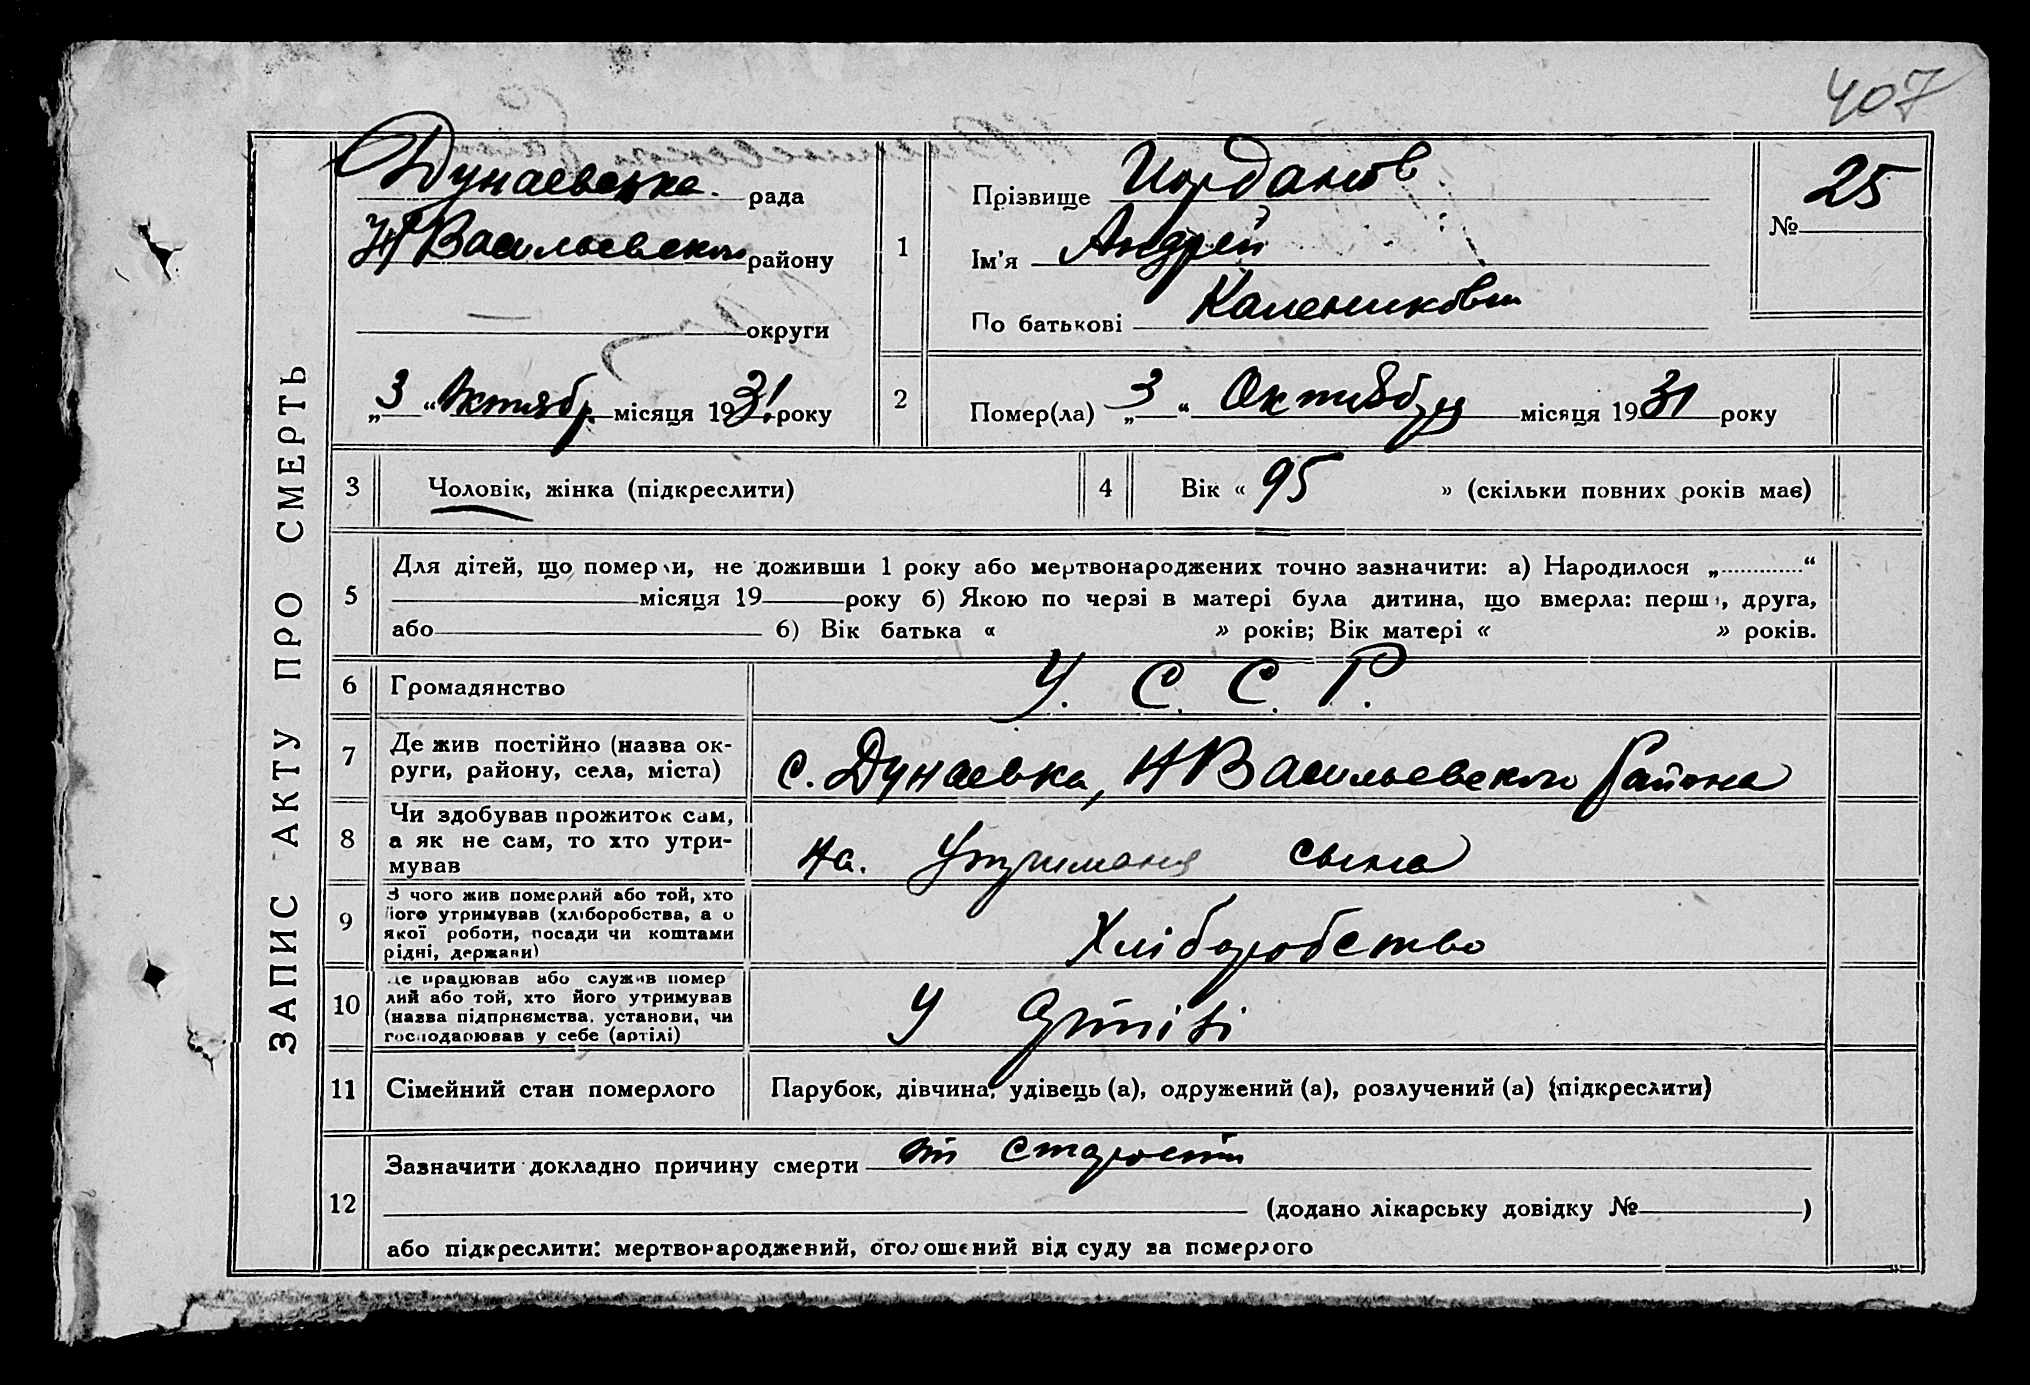 407
ЗАПИС АКТУ ПРО СМЕРТЬ
Дунаевская рада
НВасильевского району
округи
„3“ Октябр. місяця 1931 року
1
Прізвище Иорданов
Ім'я Андрей
По батькові Каленикови
№ 25
2
Помер(ла) „3“ Октября місяця 1931 року
3 Чоловік, жінка (підкреслити)
4 Вік « 95 » (скільки повних років має)
5
Для дітей, що померли, не доживши 1 року або мертвонароджених точно зазначити: а) Народилося „ “
місяця 19 року б) Якою по черзі в матері була дитина, що вмерла: перша, друга,
або 6) Вік батька « » років; Вік матері « » років.
6 Громадянство У. С. С. Р.
7 Де жив постійно (назва ок-
руги, району, села, міста)
с. Дунаевка, НВасильевского района
8 Чи здобував прожиток сам,
а як не сам, то хто утри-
мував
на. утриманя сына
9 З чого жив померлий або той, хто
його утримував (хліборобства, а о
якої роботи, посади чи коштами
рідні, держави)
Хліборобство
10 Де працював або служив помер
лий або той, хто його утримував
(назва підприємства, установи, чи
господарював у себе (артілі)
У Артілі
11 Сімейний стан померлого Парубок, дівчина, удівець (а), одружений (а), розлучений (а) (підкреслити)
12
Зазначити докладно причину смерти от старости
(додано лікарську довідку № )
або підкреслити: мертвонароджений, оголошений від суду за померлого